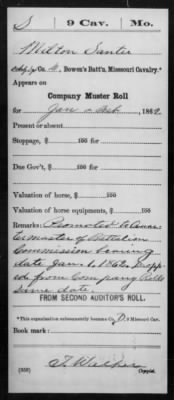 S | 9 Cav. | Mo.
Milton Santee
Co. , Bowen's Batt'n, Missouri Cavalry.*
Appears on
Company Muster Roll
for Jan & Feb, 1862
Present or absent
Stoppage, $ 100 for
Due Gov't, $ 100 for
Valuation of horse, $ 100
Valuation of horse equipments, $ 100
Remarks: Promoted to Quar-
termaster of Battalion
Commission bearing
date Jan. 1, 1862. Dropp-
ed from Company Rolls
since date.
FROM SECOND AUDITOR'S ROLL.
*This organization subsequently became Co. D, 9 Missouri Cav.
Book mark:
(358) T. Walker
Copyist.